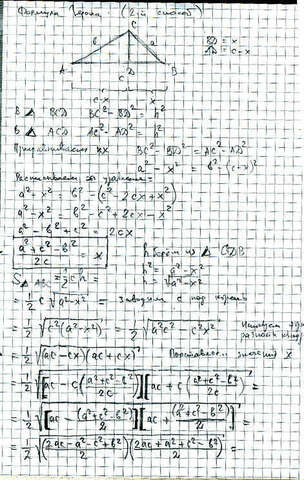 Формула Герона (2-й способ)
C
BD = x
AD = c-x
b a
A D B
c-x x
В △ BCD BC² - BD² = h²
В △ ACD AC² - AD² = h²
Приравниваем их BC² - BD² = AC² - AD²
a² - x² = b² - (c-x)²
a² - x² = b² - (c² - 2cx + x²)
a² - x² = b² - c² + 2cx - x²
a² - b² + c² = 2cx
(a² + c² - b²)/2c = x
h берём из △ CDB
h² = a² - x²
h = √(a² - x²)
S△ABC = ½ch =
= ½ c √(a² - x²) = Заводим c под корень
= ½ √(c²(a² - x²)) = ½ √(a²c² - c²x²)
= ½ √((ac - cx)(ac + cx)) Подставляем значения x
= ½ √([ac - c((a² + c² - b²)/2c)][ac + c((a² + c² - b²)/2c)]) =
= ½ √([ac - (a² + c² - b²)/2][ac + (a² + c² - b²)/2]) =
= ½ √(((2ac - a² - c² + b²)/2)((2ac + a² + c² - b²)/2)) =